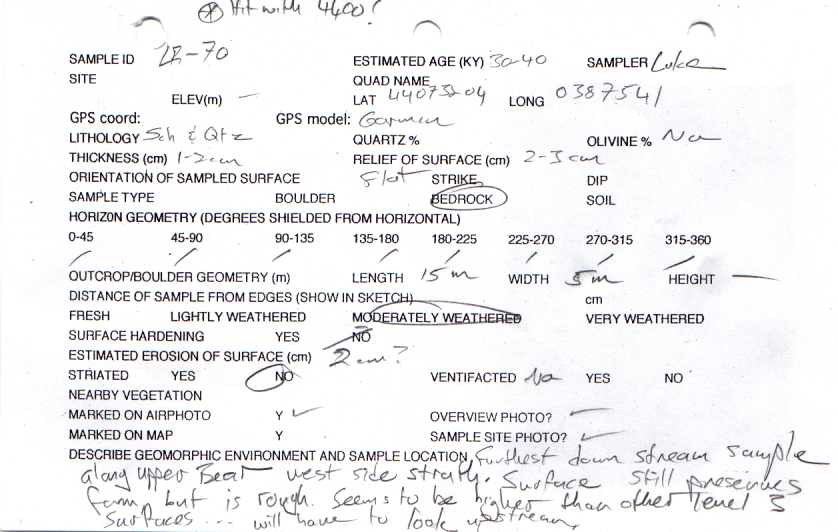 * Hit with 4400!
SAMPLE ID LR-70 ESTIMATED AGE (KY) 30-40 SAMPLER Luke
SITE QUAD NAME
ELEV(m) — LAT 4407304 LONG 0387541
GPS coord: GPS model: Garmin
LITHOLOGY Sch & Qtz QUARTZ % OLIVINE % Na
THICKNESS (cm) 1-2cm RELIEF OF SURFACE (cm) 2-3 cm
ORIENTATION OF SAMPLED SURFACE flat STRIKE DIP
SAMPLE TYPE BOULDER BEDROCK SOIL
HORIZ0N GEOMETRY (DEGREES SHIELDED FROM HORIZONTAL)
0-45 45-90 90-135 135-180 180-225 225-270 270-315 315-360
OUTCROP/BOULDER GEOMETRY (m) LENGTH 15m WIDTH 5m HEIGHT —
DISTANCE OF SAMPLE FROM EDGES (SHOW IN SKETCH) cm
FRESH LIGHTLY WEATHERED MODERATELY WEATHERED VERY WEATHERED
SURFACE HARDENING YES NO
ESTIMATED EROSION OF SURFACE (cm) 2cm?
STRIATED YES NO VENTIFACTED No YES NO
NEARBY VEGETATION
MARKED ON AIRPHOTO Y ✓ OVERVIEW PHOTO? ✓
MARKED ON MAP Y SAMPLE SITE PHOTO? ✓
DESCRIBE GEOMORPHIC ENVIRONMENT AND SAMPLE LOCATION Furthest down stream sample
along upper Bear west side strath. Surface still preserves
form but is rough. Seems to be higher than other level 3
surfaces... will have to look upstream.